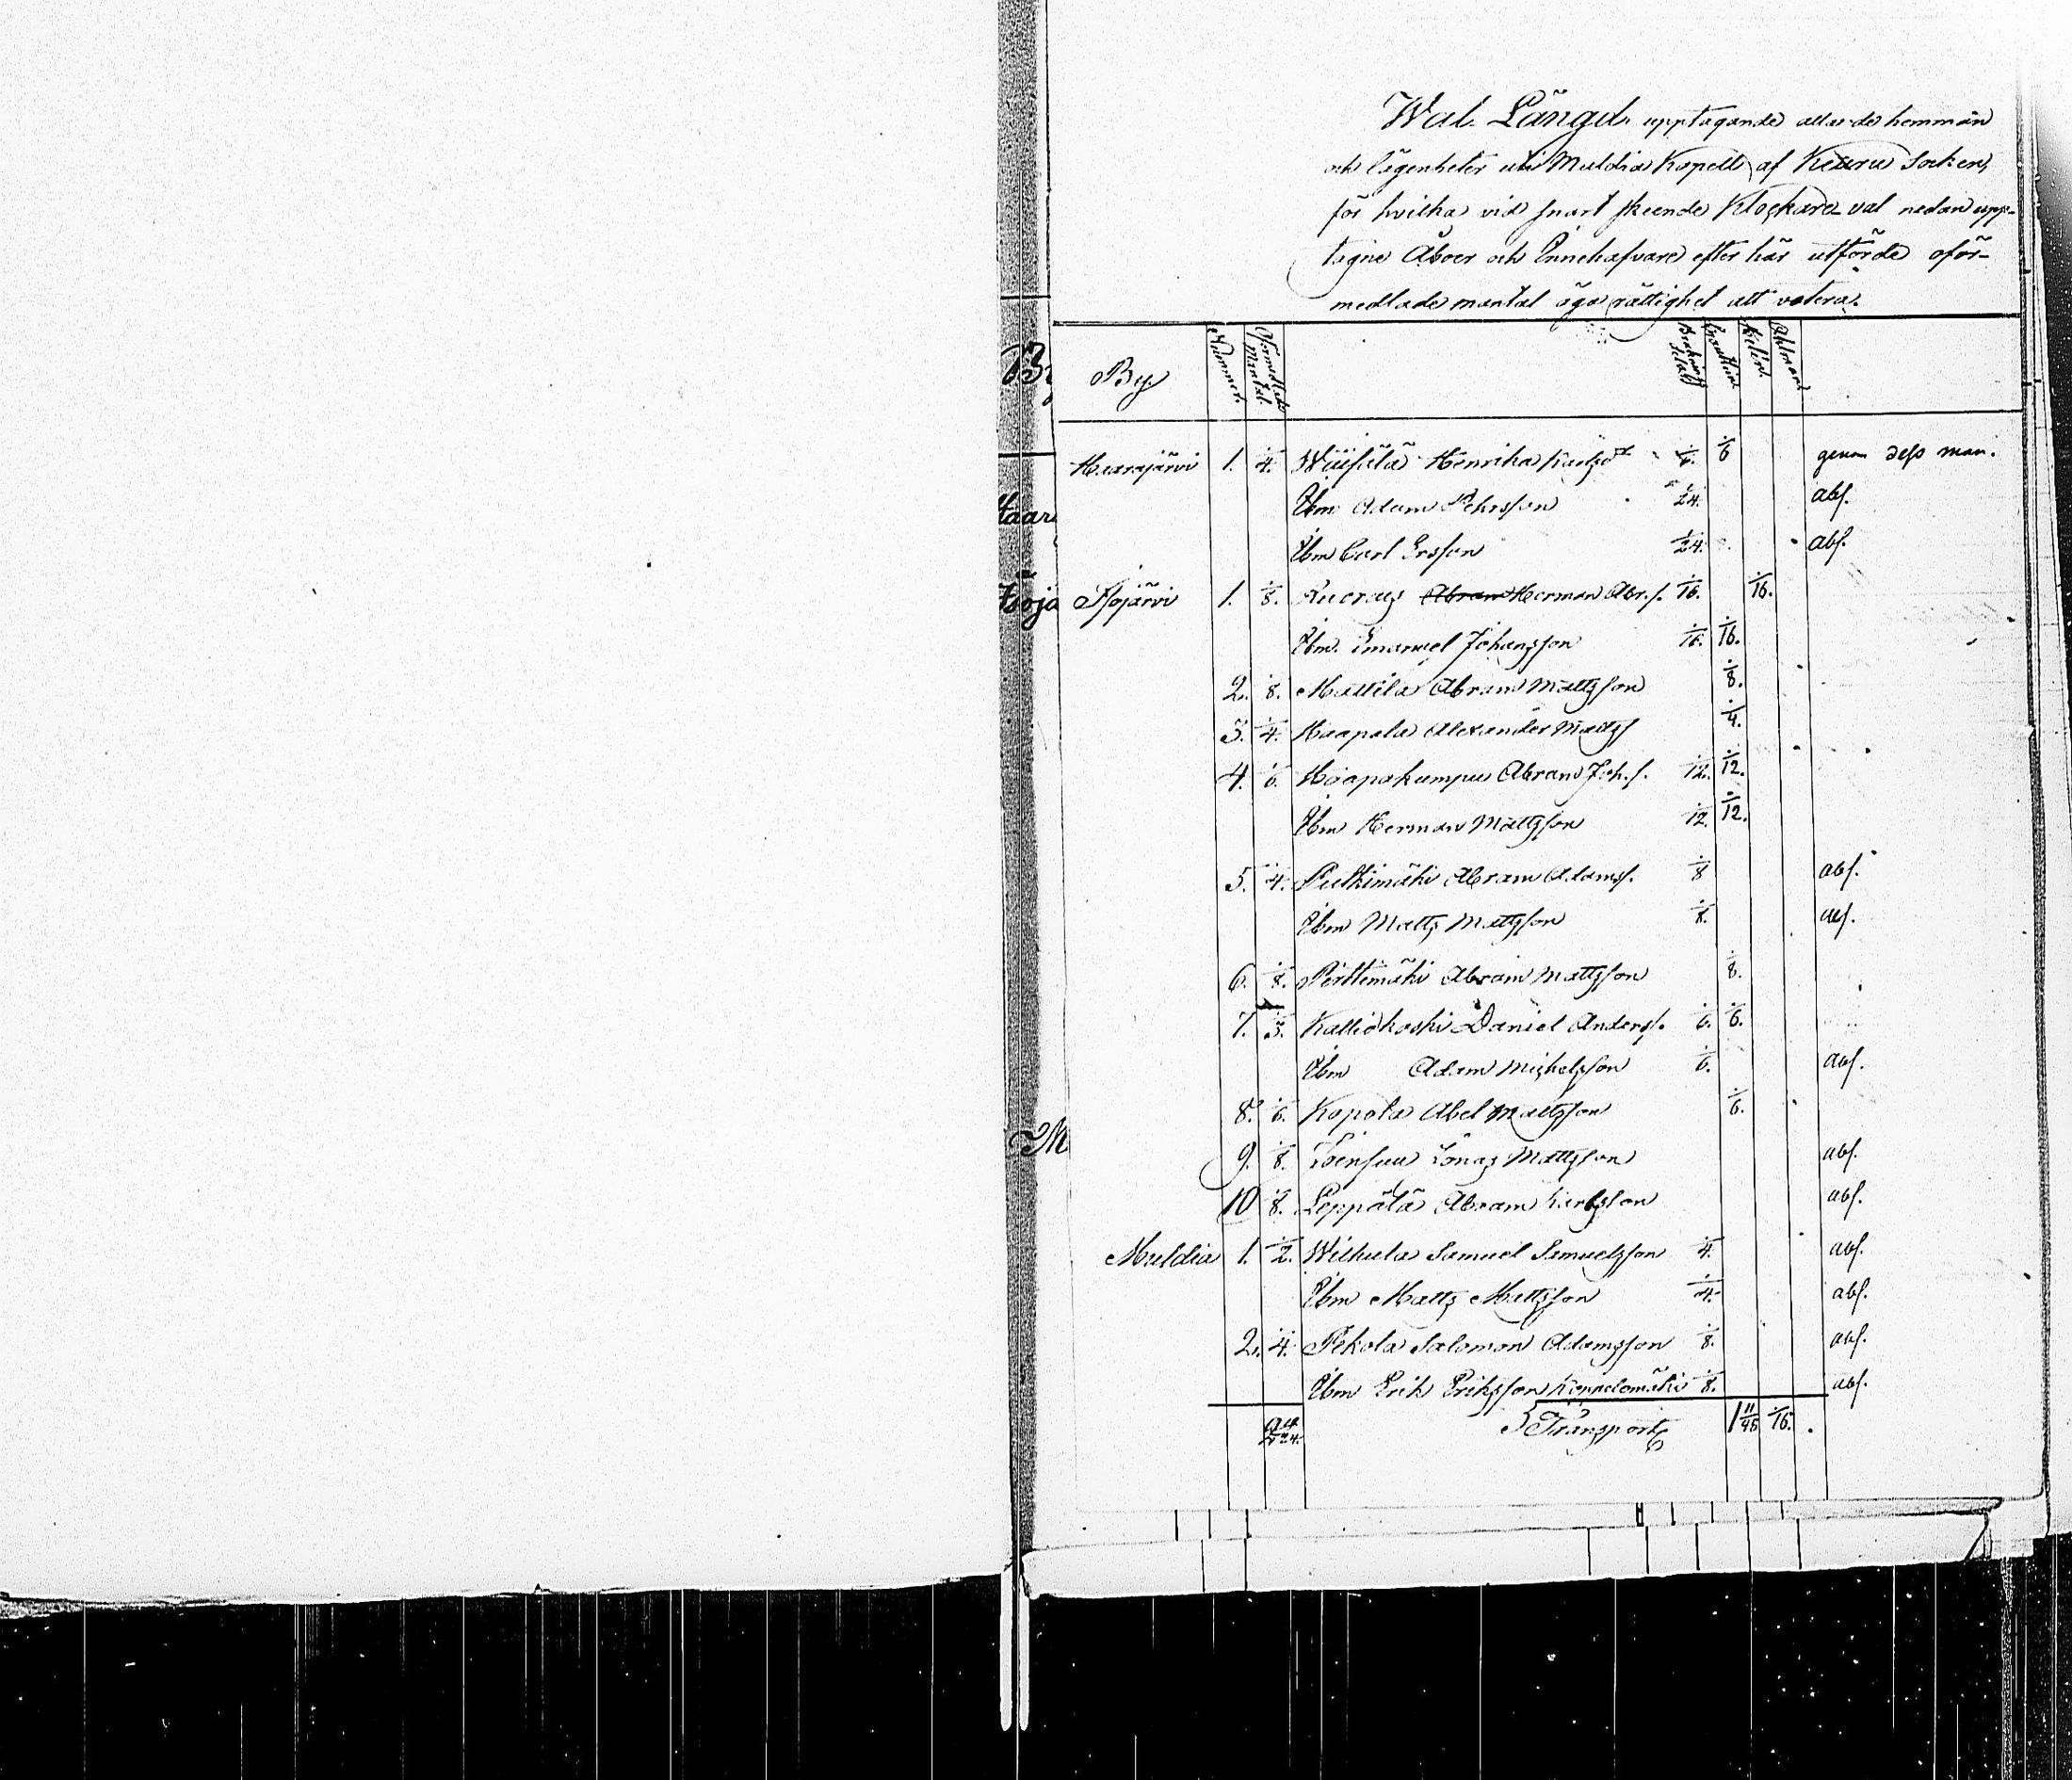 Wal Längd upptagande alla de hemman
och lägenheter uti Muldia Kapell af Keuru Socken,
för hvilka vid snart skeende Klockare val nedan upp-
tagne Åboer och Innehafvare efter här utförde oför-
medlade mantal äga rättighet att votera.
By Nummer. Oförmedlade Mantal.
Haarajärvi 1. 1/4. Henrika 1/6. 1/6 genom dess man.
Ibm Adam Pehrsson 1/24. abs.
Ibm Carl Ersson 1/24. abs.
Isojärvi 1. 1/8. Abram Herman Abr.s. 1/16. 1/16.
Ibm. Emanuel Johansson 1/16. 1/16.
2. 1/8. Mattila Abram Mattsson 1/8.
3. 1/4. Haapala Alexander Matts 1/4.
4. 1/6. Haapakumpu Abram Joh.s. 1/12. 1/12.
Ibm Herman Mattsson 1/12. 1/12.
5. 1/4. Putkimäki Abram Adams. 1/8 abs.
Ibm Matts Mattsson 1/8. abs.
6. 1/8. Perttimäki Abram Mattsson 1/8.
7. 1/3. Kalliokoski Daniel Anders. 1/6. 1/6.
Ibm Adam Michelsson 1/6. abs.
8. 1/6. Kapola Abel Mattsson 1/6.
9. 1/8. Joensuu Jonas Mattsson abs.
10 1/8. Leppälä Abram Karlsson abs.
Muldia 1. 1/2. Wilkula Samuel Samuelsson 1/4. abs.
Ibm Matts Mattsson 1/4. abs.
2. 1/4. Pekola Salomon Adamsson 1/8. abs.
Ibm Erik Eriksson Koppelomäki 1/8. abs.
Transport 1 11/48 1/16.